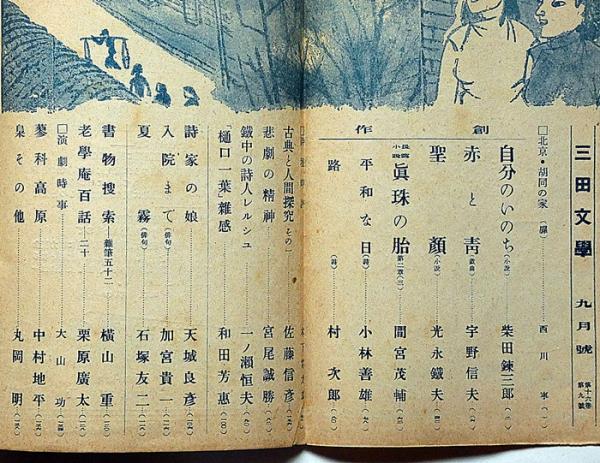 三田文學 九月號 第十六卷 第九號
□北京・胡同の家（扉） 西川寧
創作
自分のいのち（小說） 柴田鍊三郎
赤と靑（戲曲） 宇野信夫
聖顏（小說） 光永鐵夫
長篇小說 眞珠の胎 第二章（三） 間宮茂輔
平和な日（詩） 小林善雄
路（詩） 村次郎
古典と人間探究 その一 佐藤信彥
悲劇の精神 宮尾誠勝
鐵中の詩人レルシュ 一ノ瀨恒夫
「樋口一葉」雜感 和田芳惠
詩家の娘 天城良彥
入院まで（俳句） 加宮貴一
夏霧（俳句） 石塚友二
書物搜索 —雜筆五十二— 橫山重
老學庵百話 —二十 栗原廣太
□演劇時事 大山功
蓼科高原 中村地平
梟その他 丸岡明